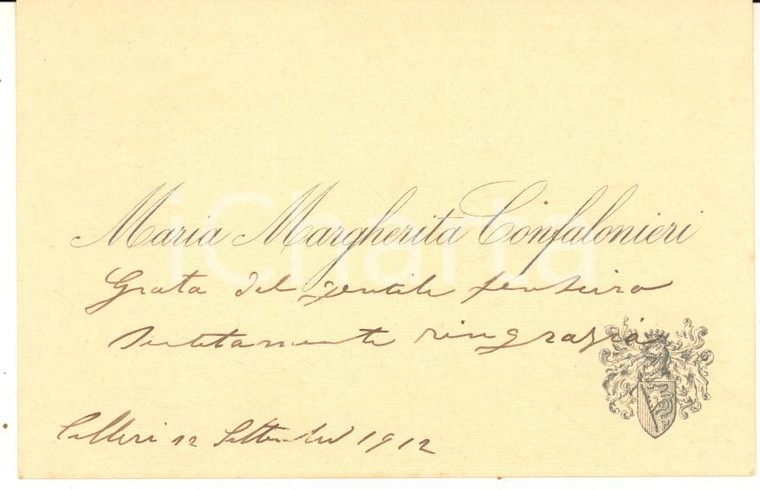 Maria Margherita Confalonieri
iCharta
Grata del gentile pensiero
sentitamente ringrazia
Celleri 12 Settembre 1912